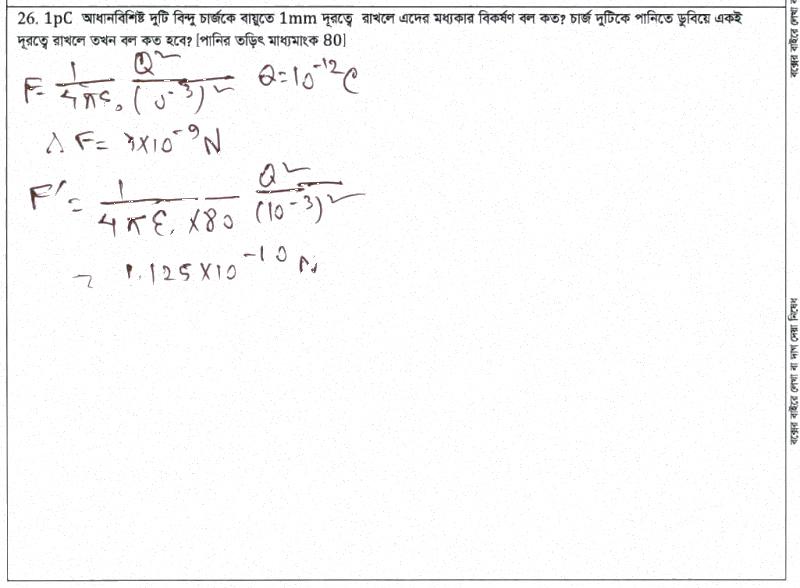 26. 1pC আধানবিশিষ্ট দুটি বিন্দু চার্জকে বায়ুতে 1mm দূরত্বে রাখলে এদের মধ্যকার বিকর্ষণ বল কত? চার্জ দুটিকে পানিতে ডুবিয়ে একই
দূরত্বে রাখলে তখন বল কত হবে? [পানির তড়িৎ মাধ্যমাংক 80]
F = 1/4πε₀ Q²/(10⁻³)² Q=10⁻¹²C
∴ F = 9×10⁻⁹N
F' = 1/4πε₀×80 Q²/(10⁻³)²
= 1.125×10⁻¹⁰ N
বক্সের বাইরে লেখা বা দাগ দেয়া নিষেধ